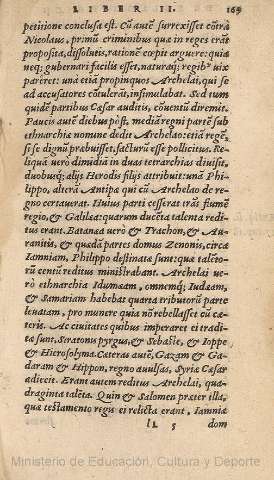 LIBER II. 169
petitione conclusa est. Cū autē surrexisset cōtra
Nicolaus, primū criminibus qua in reges erāt
proposita, dissolutis, rationē cœpit arguere: quia
neq; gubernari facilis esset, naturāq; regib⁹ uix
pareret: unà etiā propinquos Archelai, qui se
ad accusatores cōtulerāt, insimulabat. Sed tum
quidē partibus Cæsar auditis, cōuentū diremit.
Paucis autē diebus pōst, mediā regni partē sub
ethnarchia nomine dedit Archelao: etiā regē,
si se dignū præbuisset, facturū esse pollicitus. Re-
liquā uerò dimidiā in duas tetrarchias diuisit,
duobusq́; alijs Herodis filijs attribuit: unā Phi-
lippo, alterā Antipa qui cū Archelao de re-
gno certauerat. Huius parti cesserat trās flumē
regio, & Galilæa: quarum ducēta talenta redi-
tus erant. Batanæa uerò & Trachon, & Au-
ranitis, & quædā partes domus Zenonis, circæ
Iamniam, Philippo destinatæ sunt: quæ talēto-
rū centū reditus ministrabant. Archelai ue-
rò ethnarchia Idumæam, omnemq́; Iudæam,
& Samariam habebat quarta tributorū parte
leuatam, pro munere quia nō rebellasset cū cæ-
teris. Ac ciuitates quibus imperaret ei tradi-
tæ sunt, Stratonis pyrgus, & Sebaste, & Ioppe
& Hierosolyma. Cæteras autē, Gazam & Ga-
daram & Hippon, regno auulsas, Syriæ Cæsar
adiecit. Erant autem reditus Archelai, qua-
draginta talēta. Quin & Salomen præter illa,
quæ testamento regis ei relicta erant, Iamniæ
LL 5 dom
Ministerio de Educación, Cultura y Deporte